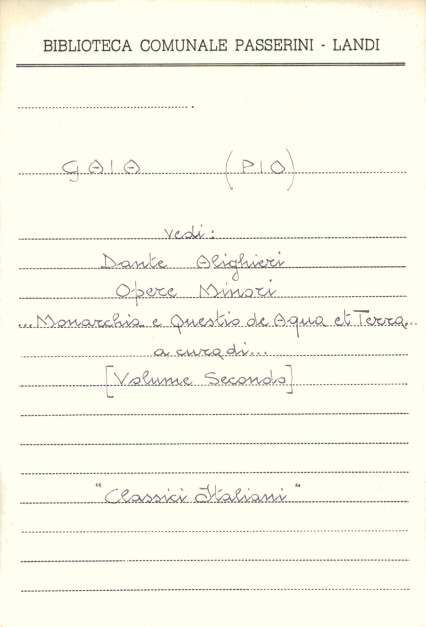 BIBLIOTECA COMUNALE PASSERINI - LANDI
GAIA (PIO)
vedi:
Dante Alighieri
Opere Minori
... Monarchia e Questio de Aqua et Terra...
a cura di...
[Volume Secondo]
"Classici Italiani"